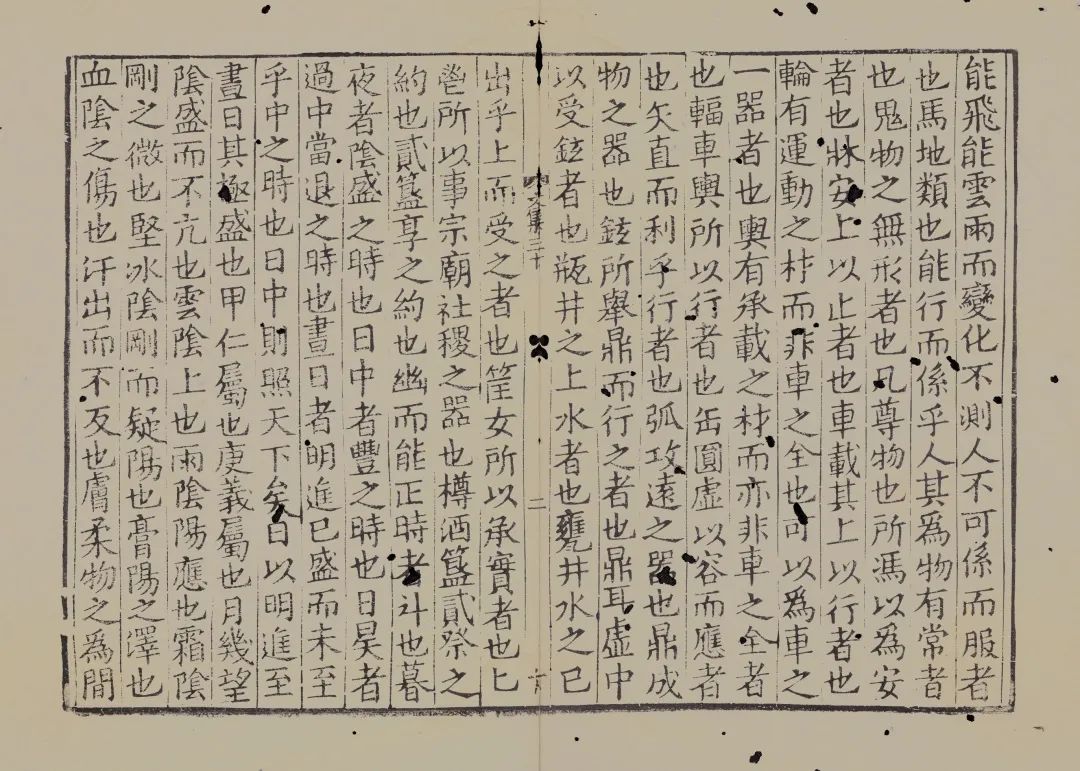 能飛能雲雨而變化不測人不可係而服者
也馬地類也能行而係乎人其爲物有常者
也鬼物之無形者也凡尊物也所馮以爲安
者也牀安上以止者也車載其上以行者也
輪有運動之材而非車之全也可以爲車之
一器者也輿有承載之材而亦非車之全者
也輻車輿所以行者也缶圓虛以容而應者
也矢直而利乎行者也弧攻遠之器也鼎成
物之器也鉉所舉鼎而行之者也鼎耳虛中
以受鉉者也瓶井之上水者也甕井水之已
文集三十
二
出乎上而受之者也筐女所以承實者也匕
鬯所以事宗廟社稷之器也樽酒簋貳祭之
約也貳簋享之約也幽而能正時者斗也暮
夜者陰盛之時也日中者豐之時也日昃者
過中當退之時也晝日者明進已盛而未至
乎中之時也日中則照天下矣日以明進至
晝日其極盛也甲仁屬也庚義屬也月幾望
陰盛而不亢也雲陰上也雨陰陽應也霜陰
剛之微也堅冰陰剛而疑陽也膏陽之澤也
血陰之傷也汗出而不反也膚柔物之爲間